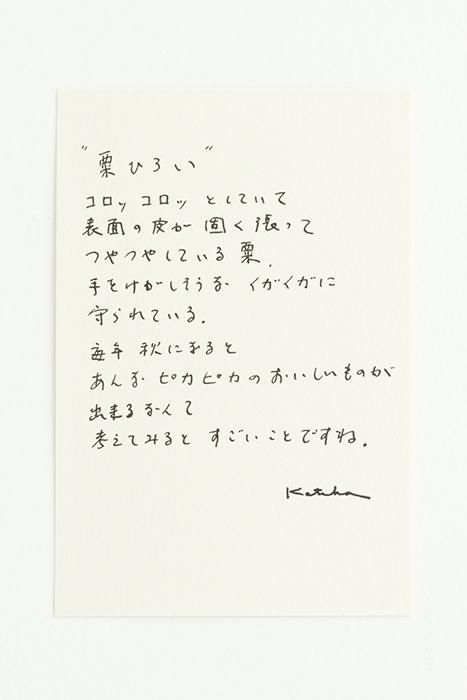 "栗ひろい"
コロッ コロッ としていて
表面の皮が固く張って
つやつやしている栗、
手をけがしそうな イガイガに
守られている。
毎年 秋になると
あんな ピカピカの おいしいものが
出来るなんて
考えてみると すごいことですね。